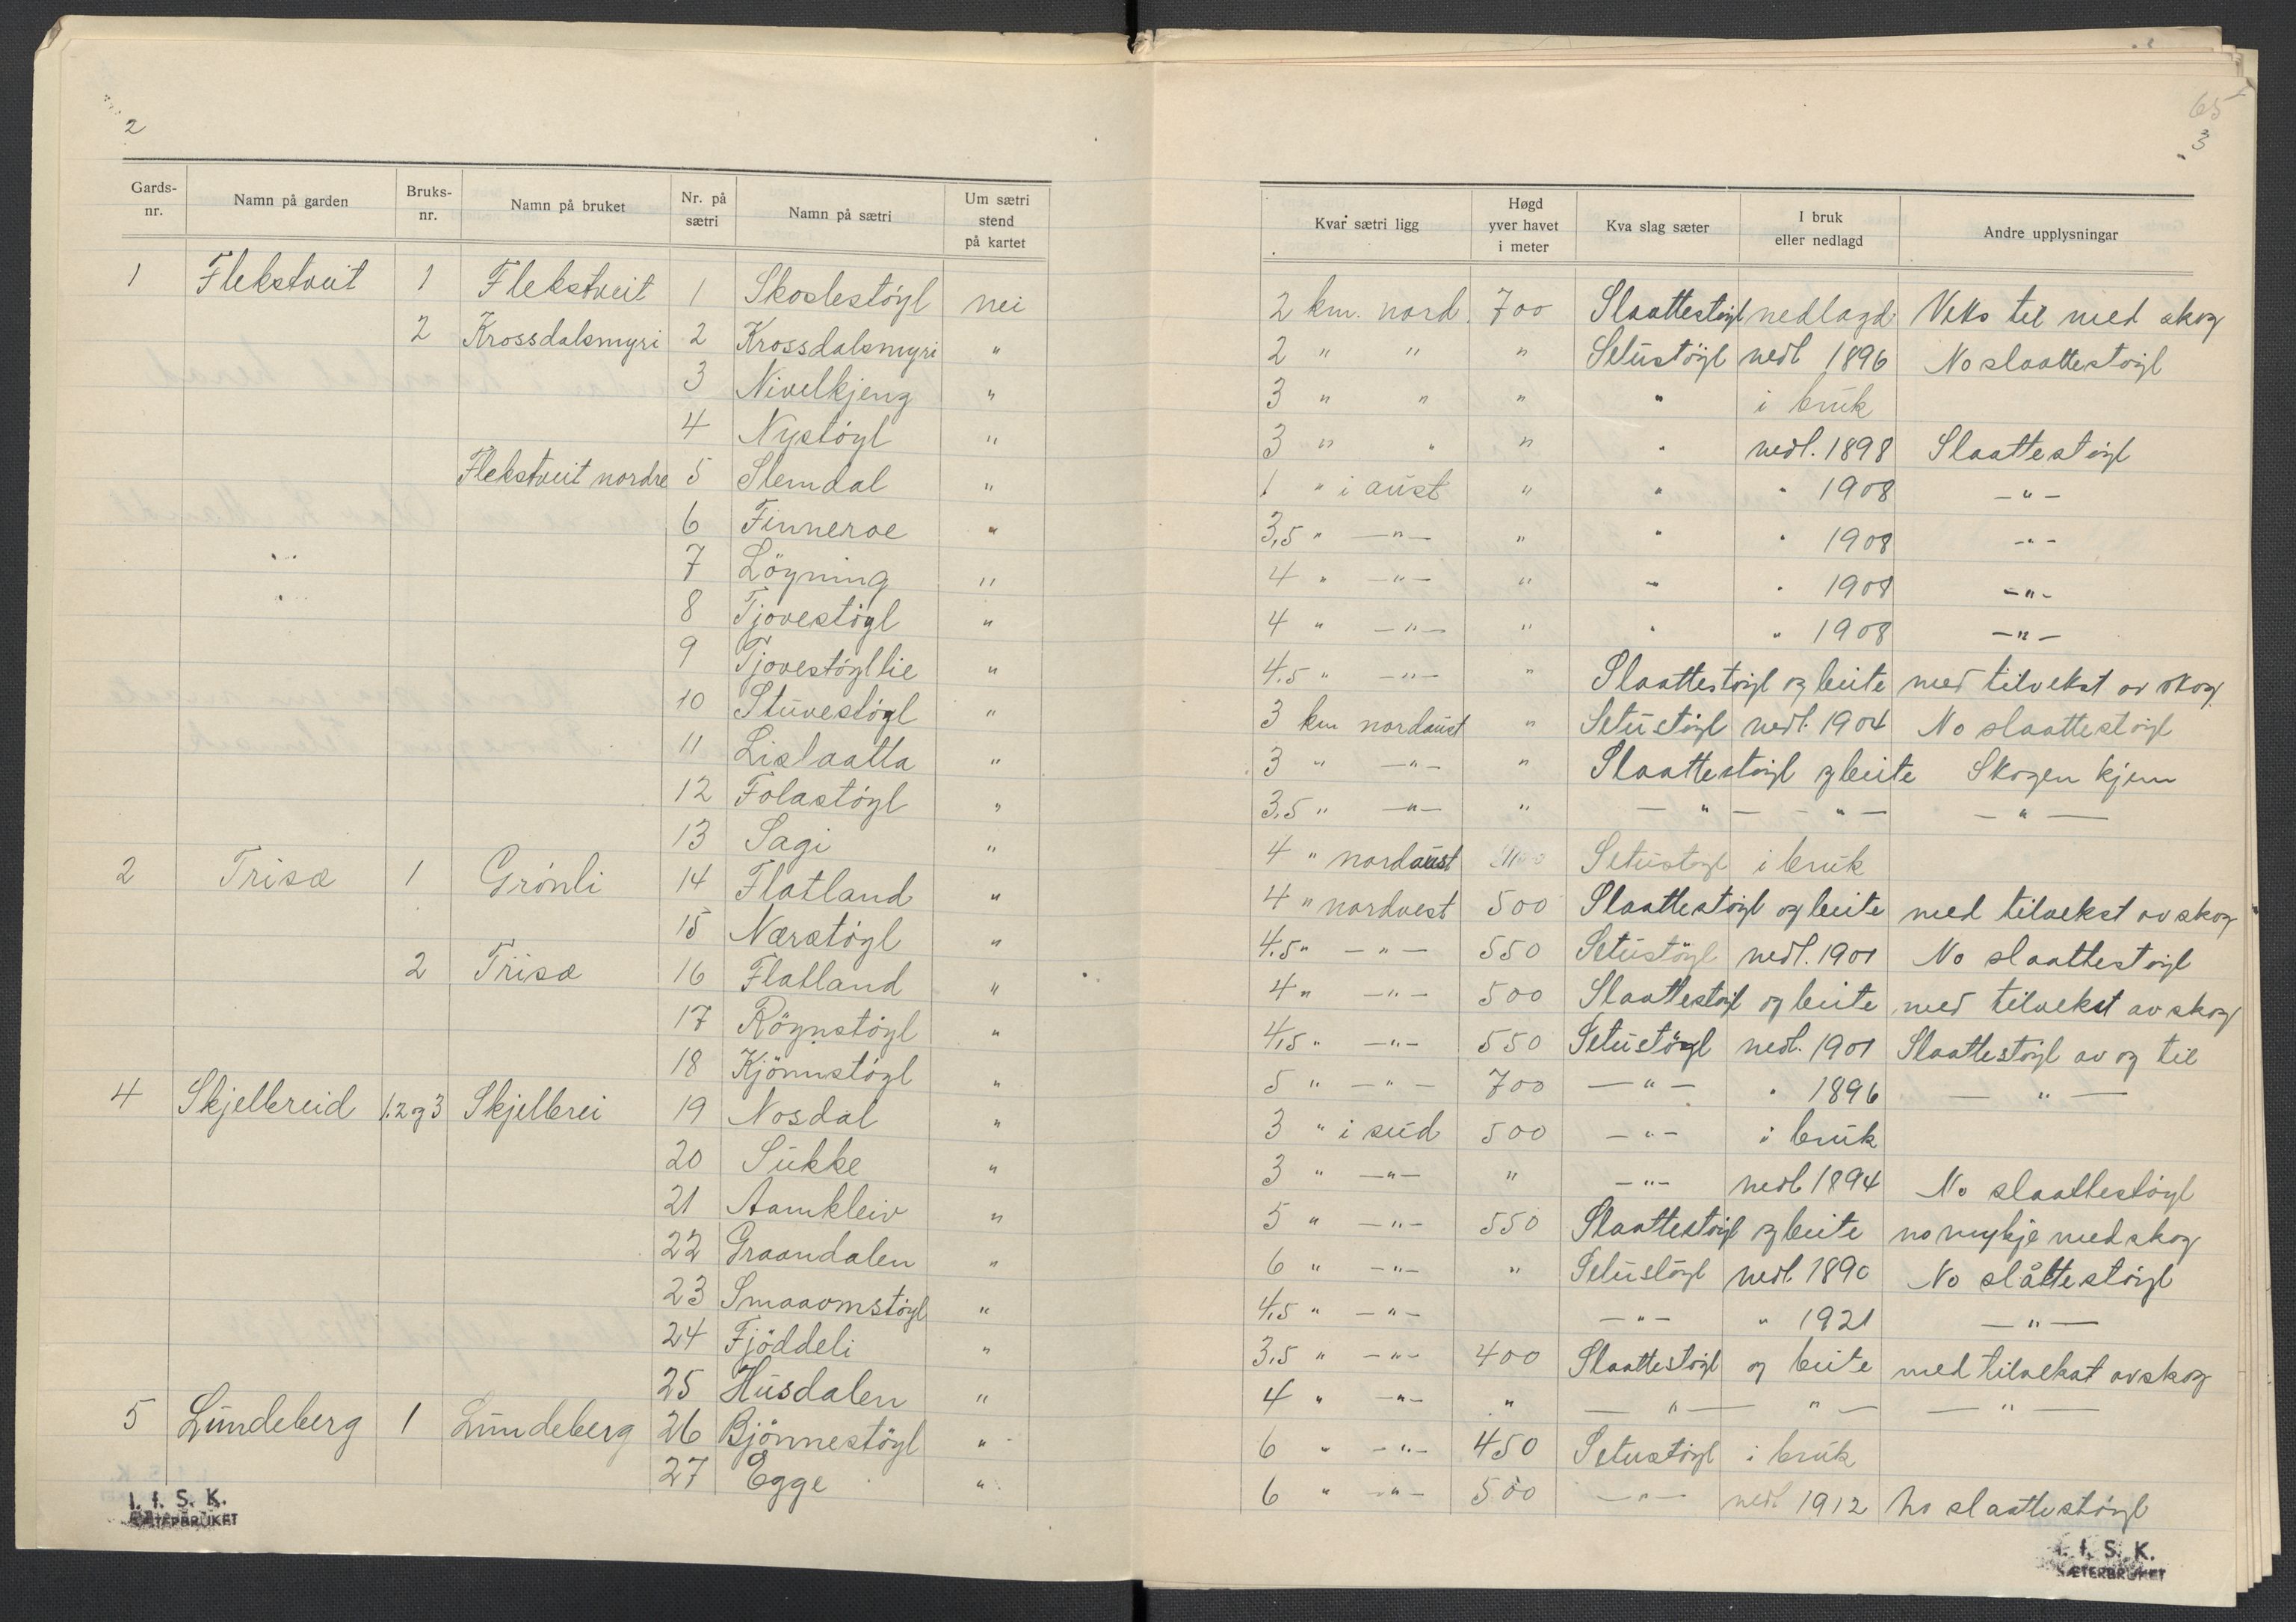 2
Gards-nr. Namn på garden Bruks-nr. Namn på bruket Nr. på sætri Namn på sætri Um sætri stend på kartet
1 Flekstveit 1 Flekstveit 1 Skoslestöyl nei
2 Krossdalsmyri 2 Krossdalsmyri "
3 Nivelkjeng "
4 Nystöyl "
Flekstveit nordre 5 Slemdal "
6 Finneroe "
7 Löyning "
8 Tjovestöyl "
9 Tjovestöyllie "
10 Stuvestöyl "
11 Lislaatta "
12 Folastöyl "
13 Sagi "
2 Trisæ 1 Grönli 14 Flatland "
15 Nærstöyl "
2 Trisæ 16 Flatland "
17 Röynstöyl "
18 Kjönnstöyl "
4 Skjelbreid 1.2 og 3 Skjelbrei 19 Nosdal "
20 Sukke "
21 Aamkleiv "
22 Graandalen "
23 Smaaomstöyl "
24 Fjöddeli "
25 Husdalen "
5 Lundeberg 1 Lundeberg 26 Bjönnestöyl "
27 Egge "
I. f. S. K.
SÆTERBRUKET
65
3
Kvar sætri ligg Høgd yver havet i meter Kva slag sæter I bruk eller nedlagd Andre upplysningar
2 km. nord 700 Slaattestöyl nedlagd Veks til med skog
2 " " " Setustöyl nedl 1896 No slaattestöyl
3 " " " " i bruk
3 " " " " nedl. 1898 Slaattestöyl
1 " i aust " " " 1908 — " —
3,5 " — " — " " " 1908 — " —
4 " — " — " " " 1908 — " —
4 " — " — " " " 1908 — " —
4.5 " — " — " Slaattestöyl og beite med tilvekst av skog
3 km nordaust " Setustöyl nedl. 1904 No slaattestöyl
3 " — " — " Slaattestöyl og beite Skogen kjem
3,5 " — " — " — " — — " — — " —
4 " nordaust Setustöyl i bruk
4 " nordvest 500 Slaattestöyl og beite med tilvekst av skog
4.5 " — " — 550 Setustöyl nedl. 1901 No slaattestöyl
4 " — " — 500 Slaattestöyl og beite med tilvekst av skog
4,5 " — " — 550 Setustöyl nedl. 1901 Slaattestöyl av og til
5 " — " — 700 — " — " 1896 — " —
3 " i sud 500 — " — i bruk
3 " — " — " — " — nedl 1894 No slaattestöyl
5 " — " — 550 Slaattestöyl og beite no mykje med skog
6 " — " — " Setustöyl nedl. 1890 No slåttestöyl
4,5 " — " — — " — " 1921 — " —
3,5 " — " — 400 Slaattestöyl og beite med tilvekst av skog
4 " — " — " — " — " — — " —
6 " — " — 450 Setustöyl i bruk
6 " — " — 500 — " — nedl 1912 No slaattestöyl
I. f. S. K.
SÆTERBRUKET